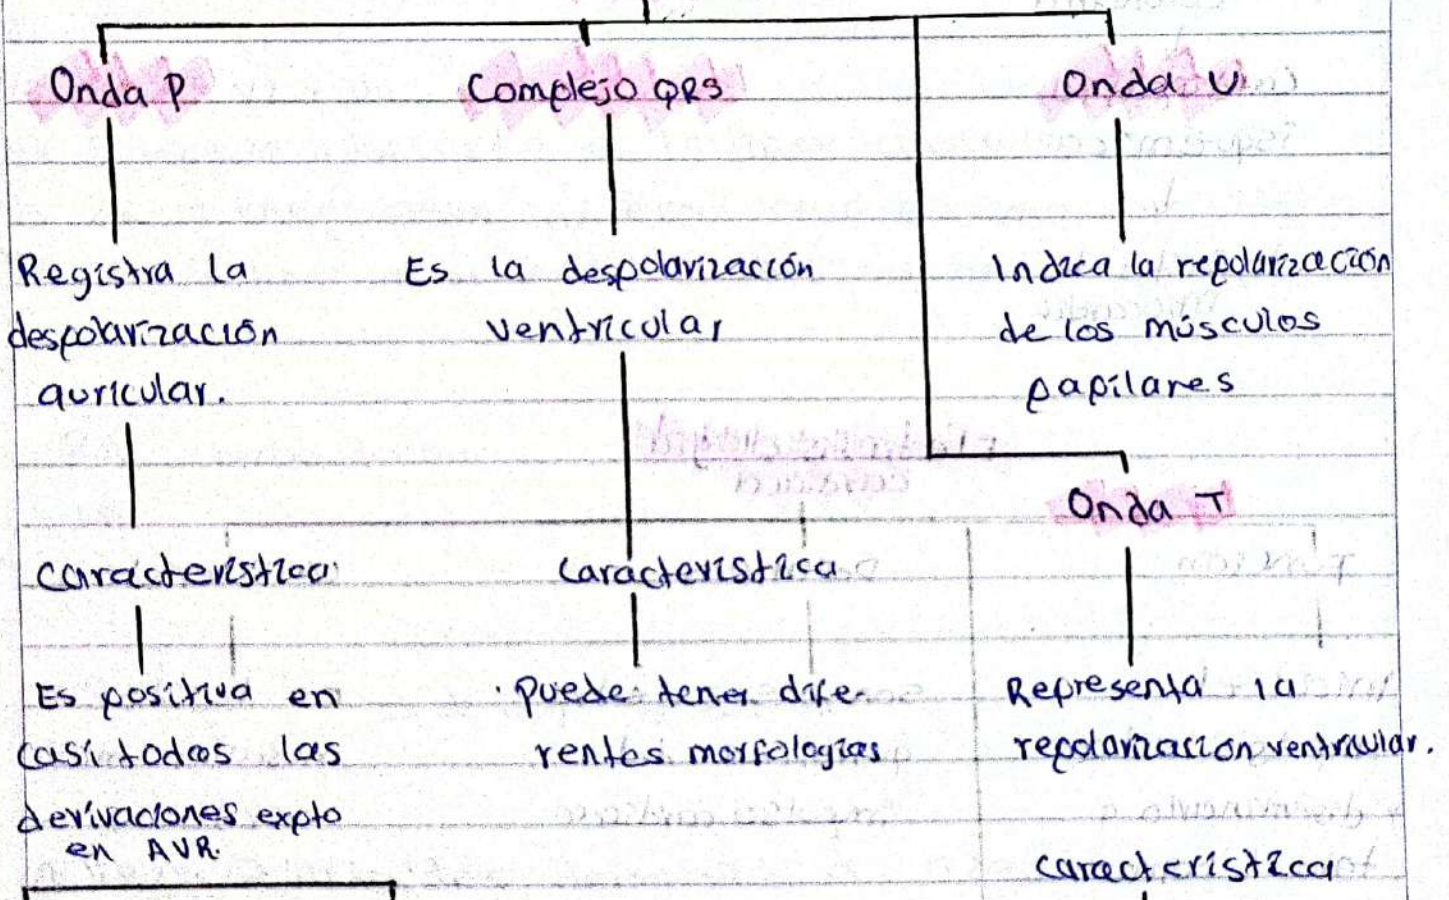 Onda P
Registra la
despolarización
auricular.
característica
Es positiva en
casi todas las
derivaciones expto
en AVR.
Complejo QRS
Es la despolarización
ventricular
característica
puede tener dife
rentes morfologías
Onda U
Indica la repolarización
de los músculos
papilares
Onda T
Representa la
repolarización ventricular.
característica